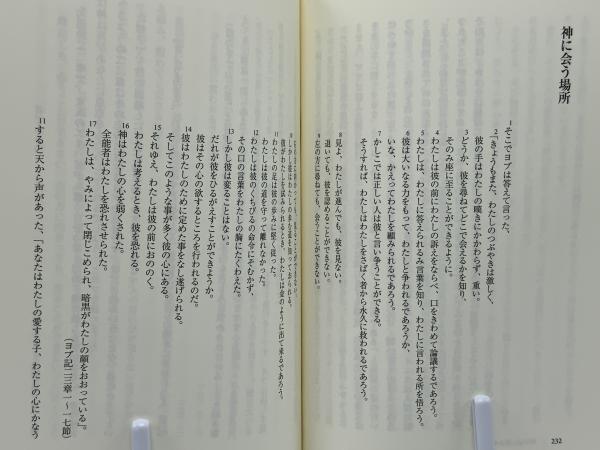 神に会う場所
1そこでヨブは答えて言った、
2「きょうもまた、わたしのつぶやきは激しく、
彼の手はわたしの嘆きにかかわらず、重い。
3どうか、彼を尋ねてどこで会えるかを知り、
そのみ座に至ることができるように。
4わたしは彼の前にわたしの訴えをならべ、口をきわめて論議するであろう。
5わたしは、わたしに答えられるみ言葉を知り、わたしに言われる所を悟ろう。
6彼は大いなる力をもって、わたしと争われるであろうか、
いな、かえってわたしを顧みられるであろう。
7かしこでは正しい人は彼と言い争うことができる。
そうすれば、わたしはわたしをさばく者から永久に救われるであろう。
8見よ、わたしが進んでも、彼を見ない。
退いても、彼を認めることができない。
9左の方に尋ねても、会うことができない。
232
わたしの足は彼の歩みに堅く従った。
わたしは彼の道を守って離れなかった。
12わたしは彼のくちびるの命令にそむかず、
その口の言葉をわたしの胸にたくわえた。
13しかし彼は変ることはない。
だれが彼をひるがえすことができようか。
彼はその心の欲するところを行われるのだ。
14彼はわたしのために定めた事をなし遂げられる。
そしてこのような事が多く彼の心にある。
15それゆえ、わたしは彼の前におののく。
わたしは考えるとき、彼を恐れる。
16神はわたしの心を弱くされた。
全能者はわたしを恐れさせられた。
17わたしは、やみによって閉じこめられ、暗黒がわたしの顔をおおっている」。
(ヨブ記二三章一~一七節)
11すると天から声があった、「あなたはわたしの愛する子、わたしの心にかなう